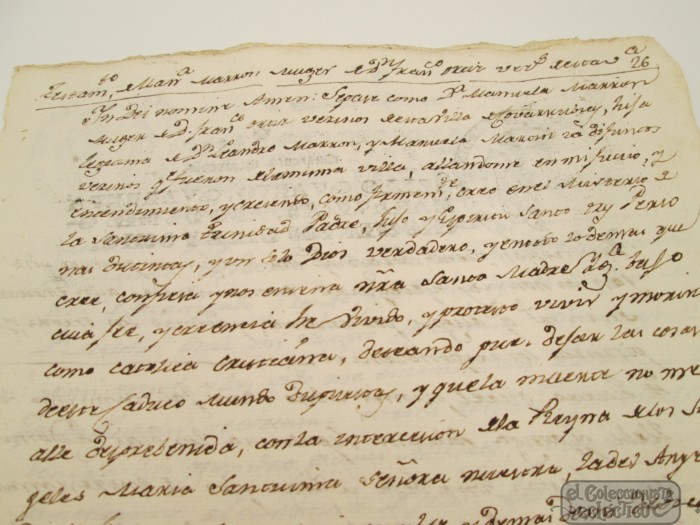 Testam.to Man.a Marron, Muger de D.n Fran.co Ortiz vez.o de esta v.a 26
In Dei nomine Amen: Sepase como D.a Manuela Marron
Muger de D. Fran.co Ortiz vezinos de esta villa de Covarrubias, hija
lexitima de D.n Leandro Marron, y Manuela ya difuntos
vezinos q.e fueron de la misma villa, allandome en mi juicio, y
entendimiento, y creiendo, como firmem.te creo en el Misterio de
la Santisima Trinidad Padre, hijo y Espiritu Santo tres Perso
nas distintas, y un solo Dios verdadero, y en todo lo demas que
cree, confiesa y nos enseña nr̃a Santa Madre Ygl.a bajo
cuia fee, y creencia he vivido, y protesto vivir y morir
como catolica cristiana, deseando pues dejar las cosas
de este caduco mundo dispuestas, y que la muerte no me
alle desprebenida, con la intercesion de la Reyna de los
geles Maria Santisima Señora nuestra, la del Ange
y demas
el Coleccionista
Eclectico